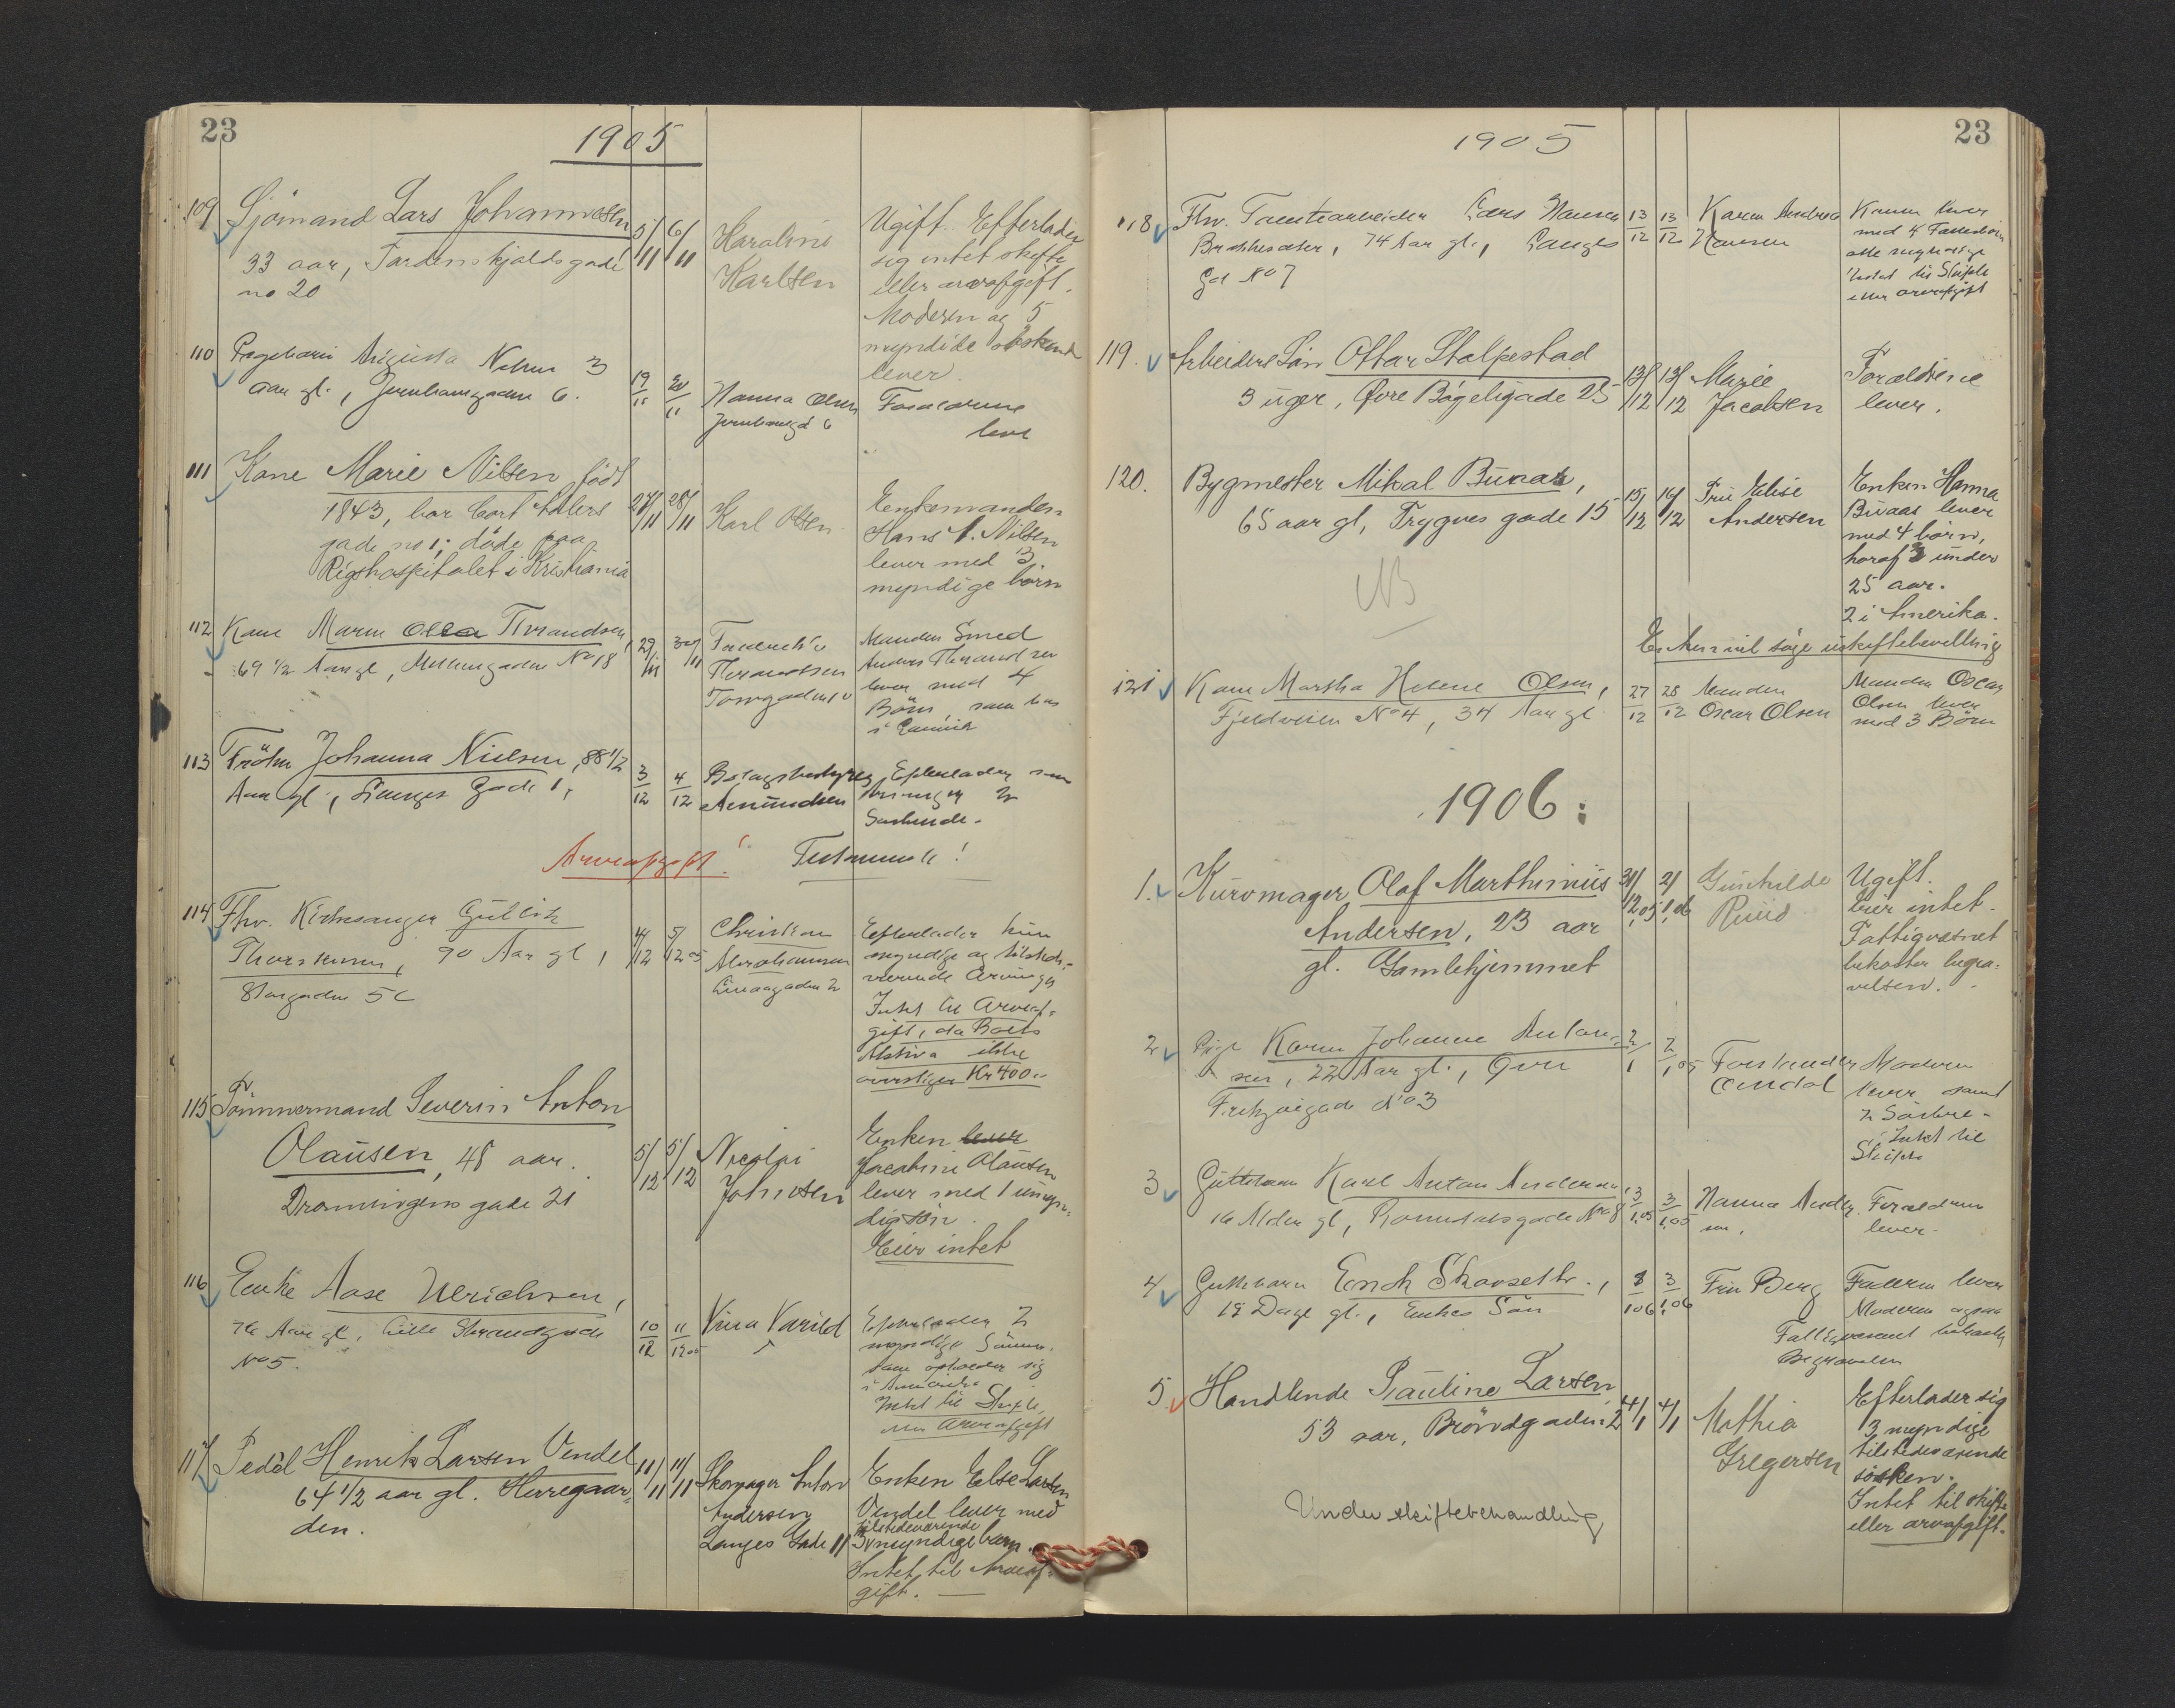 23
1905
109 Sjömand Lars Johannesen
33 aar, Tordenskjolds gade
no 20
5/11 6/11
Karoline
Karlsen
Ugift. Efterlader
sig intet skifte
eller arveafgift.
Moderen og 5
myndide söskende
lever.
110 Pigebarn Augusta Nilsen 3
aar gl., Jernbanegaden 6.
19/11 20/11
Hanna Olsen
Jernbanegd 6
Forældrene
leve
111 Kone Marie Nilsen, född
1843, bor Cort Adlers
gade no 1; döde paa
Rigshospitalet i Kristiania
27/11 28/11
Karl Olsen
Enkemanden
Hans A. Nilsen
lever med 3
myndige börn
112 Kone Maren Olea Thrandsen,
69 1/2 Aar gl, Møllergaden No 18
29/11 30/11
Fredrikke
Thrandsen
Torvgaden 10
Manden Smed
Anders Thrandsen
lever med 4
Börn, som bor
i
113 Fröken Johanna Nielsen, 88 1/2
Aar gl., Langes Gade 1,
3/12 4/12
Bolagsbestyrer
Amundsen
Efterlader som
Arvinger 2
Søskende.
Arveafgift! Testamente!
114 Fhv. Kirkesanger Gullik
Thorsen, 90 Aar gl,
Storgaden 5c
4/12 5/12 05
Christian
Abrahamsen
2
Efterlader kun
myndige og tilstede-
værende Arvinger
Intet til Arveaf-
gift, da Boets
Aktiva ikke
overstiger Kr 400.-
115 Tömmermand Severin Anton
Olausen, 48 aar.
Dronningens gade 21
5/12 5/12
Nicolai
Johnsen
Enken lever
Jacobine Olausen
lever med 1 umyn-
dig sön.
Eier intet
116 Enke Aase Ulrichsen,
76 Aar gl, Lille Strandgade
No 5.
10/12 11/12 05
Vina Varild
Efterlader 2
myndige Sönner,
som opholder sig
i Amerika
Intet til Skifte
eller Arveafgift
117 Pedel Henrik Larsen Vendel
64 1/2 aar gl. Herregaar-
den.
11/11 11/11
Skomager Anton
Andersen
Langes Gade 11
Enken Else Larsen
Vendel lever med
tilstedeværende
3 myndige barn.
Intet til Arveaf-
gift.
23
1905
118 Fhv. Tomtearbeider Lars Hansen
74 Aar gl., Langes
Gd No 7
13/12 13/12
Karen Andrea
Hansen
Konen lever
med 4 Fællesbörn
alle myndige
Intet til Skifte
eller arveafgift
119. Arbeiders Sön Ottar Stalpestad
3 uger, Øvre Bögeligade 25
13/12 13/12
Marie
Jacobsen
Forældrene
lever.
120. Bygmester Mikal Buaas,
65 aar gl, Trygves gade 15
15/12 16/12
Fru Elise
Andersen
Enken Hanna
Buaas lever
med 4 börn,
horaf 3 under
25 aar.
2 i Amerika.
NB
Enken vil söge uskiftebevilling
121 Kone Martha Helene Olsen,
Fjeldveien No 4, 34 Aar gl
27/12 28/12
Manden
Oscar Olsen
Manden Oscar
Olsen lever
med 3 Börn
1906:
1. Kurvmager Olaf Marthinius
Andersen, 23 aar
gl. Gamlehjemmet
31/12,05 2/1,06
Gunhilde
Ruud
Ugift.
Eier intet.
Fattigvæsnet
bekoster begra-
velsen.
2 Pige Karen Johanne Anton-
sen, 22 Aar gl., Øvre
No 3
2/1 2/1,05
Forstander
Omdal
Moderen
lever samt
2 Söstre.
Intet til
Skifte
3 Guttebarn Karl Anton Andersen,
16 Mdr gl, Romsdalsgade No 8
3/1,05 3/1,05
Hanna Ander-
sen.
Forældrene
lever.
4 Guttebarn Enok Skovseth.,
18 Dage gl., Enkes Sön
3/1 06 3/1,06
Fru Berg
Faderen lever
Moderen ogsaa
Fattigvæsenet bekoster
Begravelsen
5 Handlende Pauline Larsen,
53 aar, Bröndgaden 2
4/1 4/1
Mathia
Gregersen
Efterlader sig
3 myndige
tilstedeværende
sösken.
Intet til skifte
eller arvafgift.
Under skiftebehandling